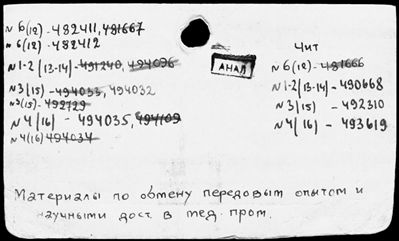 N 6(12) - 482411, 481667
N 6(12) - 482412
N 1-2 (13-14) - 491240, 494036
N 3 (15) - 494033, 494032
N 3(15) - 492729
N 4 (16) - 494035, 494109
N 4(16) 494034
АНАЛ
Чит
N 6(12) - 481666
N 1-2(13-14) - 490668
N 3(15) - 492310
N 4(16) - 493619
Материалы по обмену передовым опытом и
научными дост. в мед. пром.